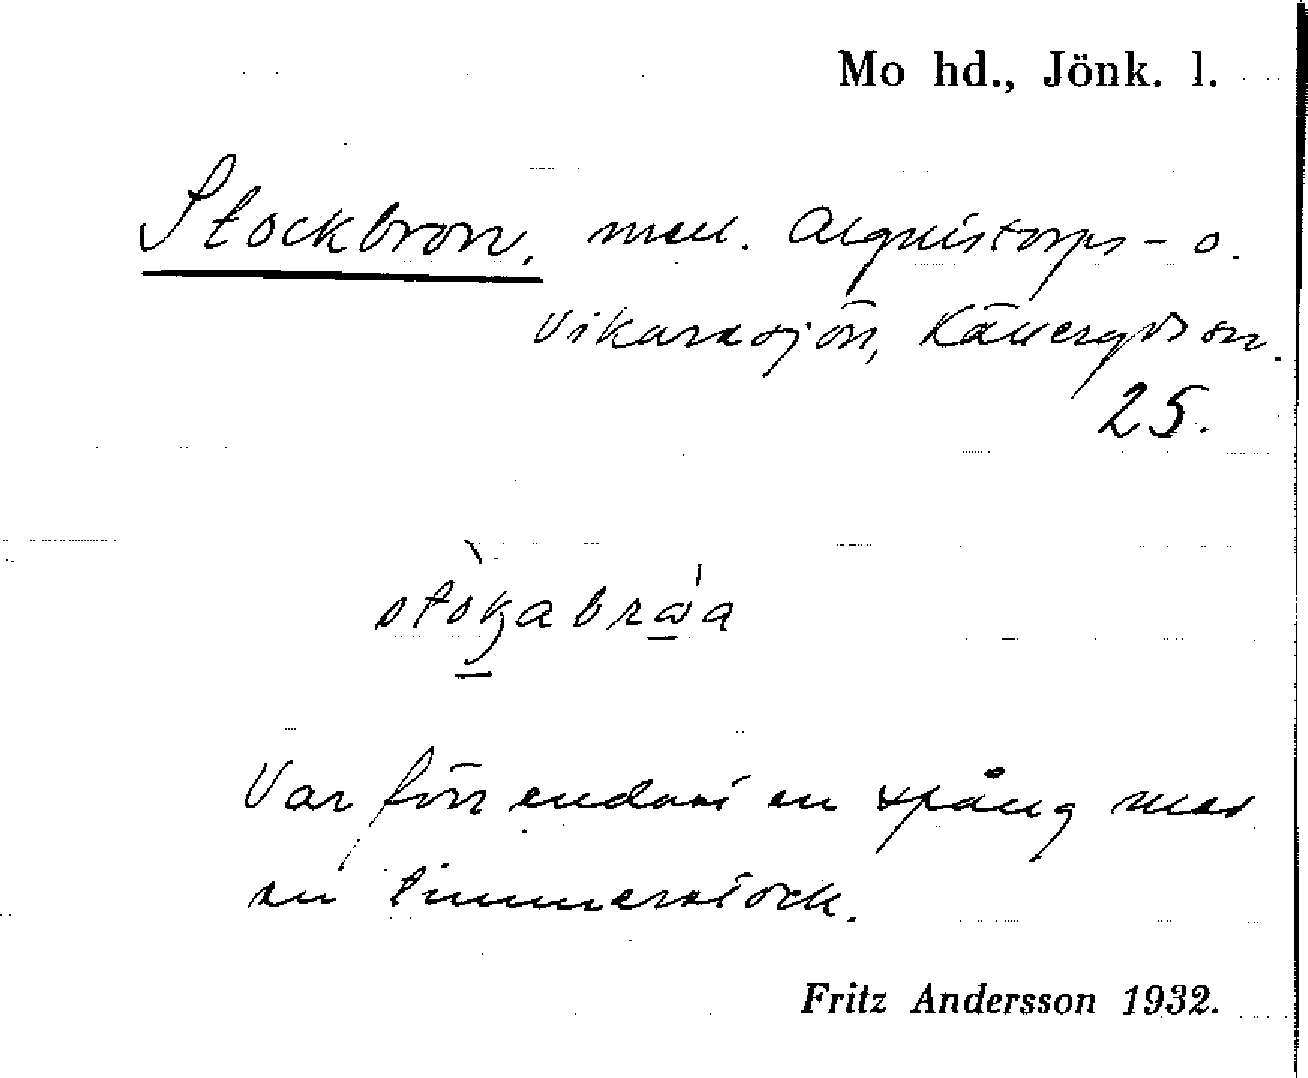 Mo hd., Jönk. l.
Stockbron, mell. Algustorps- o.
Vikaresjön, Källeryds sn.
25.
stòkabrωa
Var förr endast en spång med
en timmerstock.
Fritz Andersson 1932.